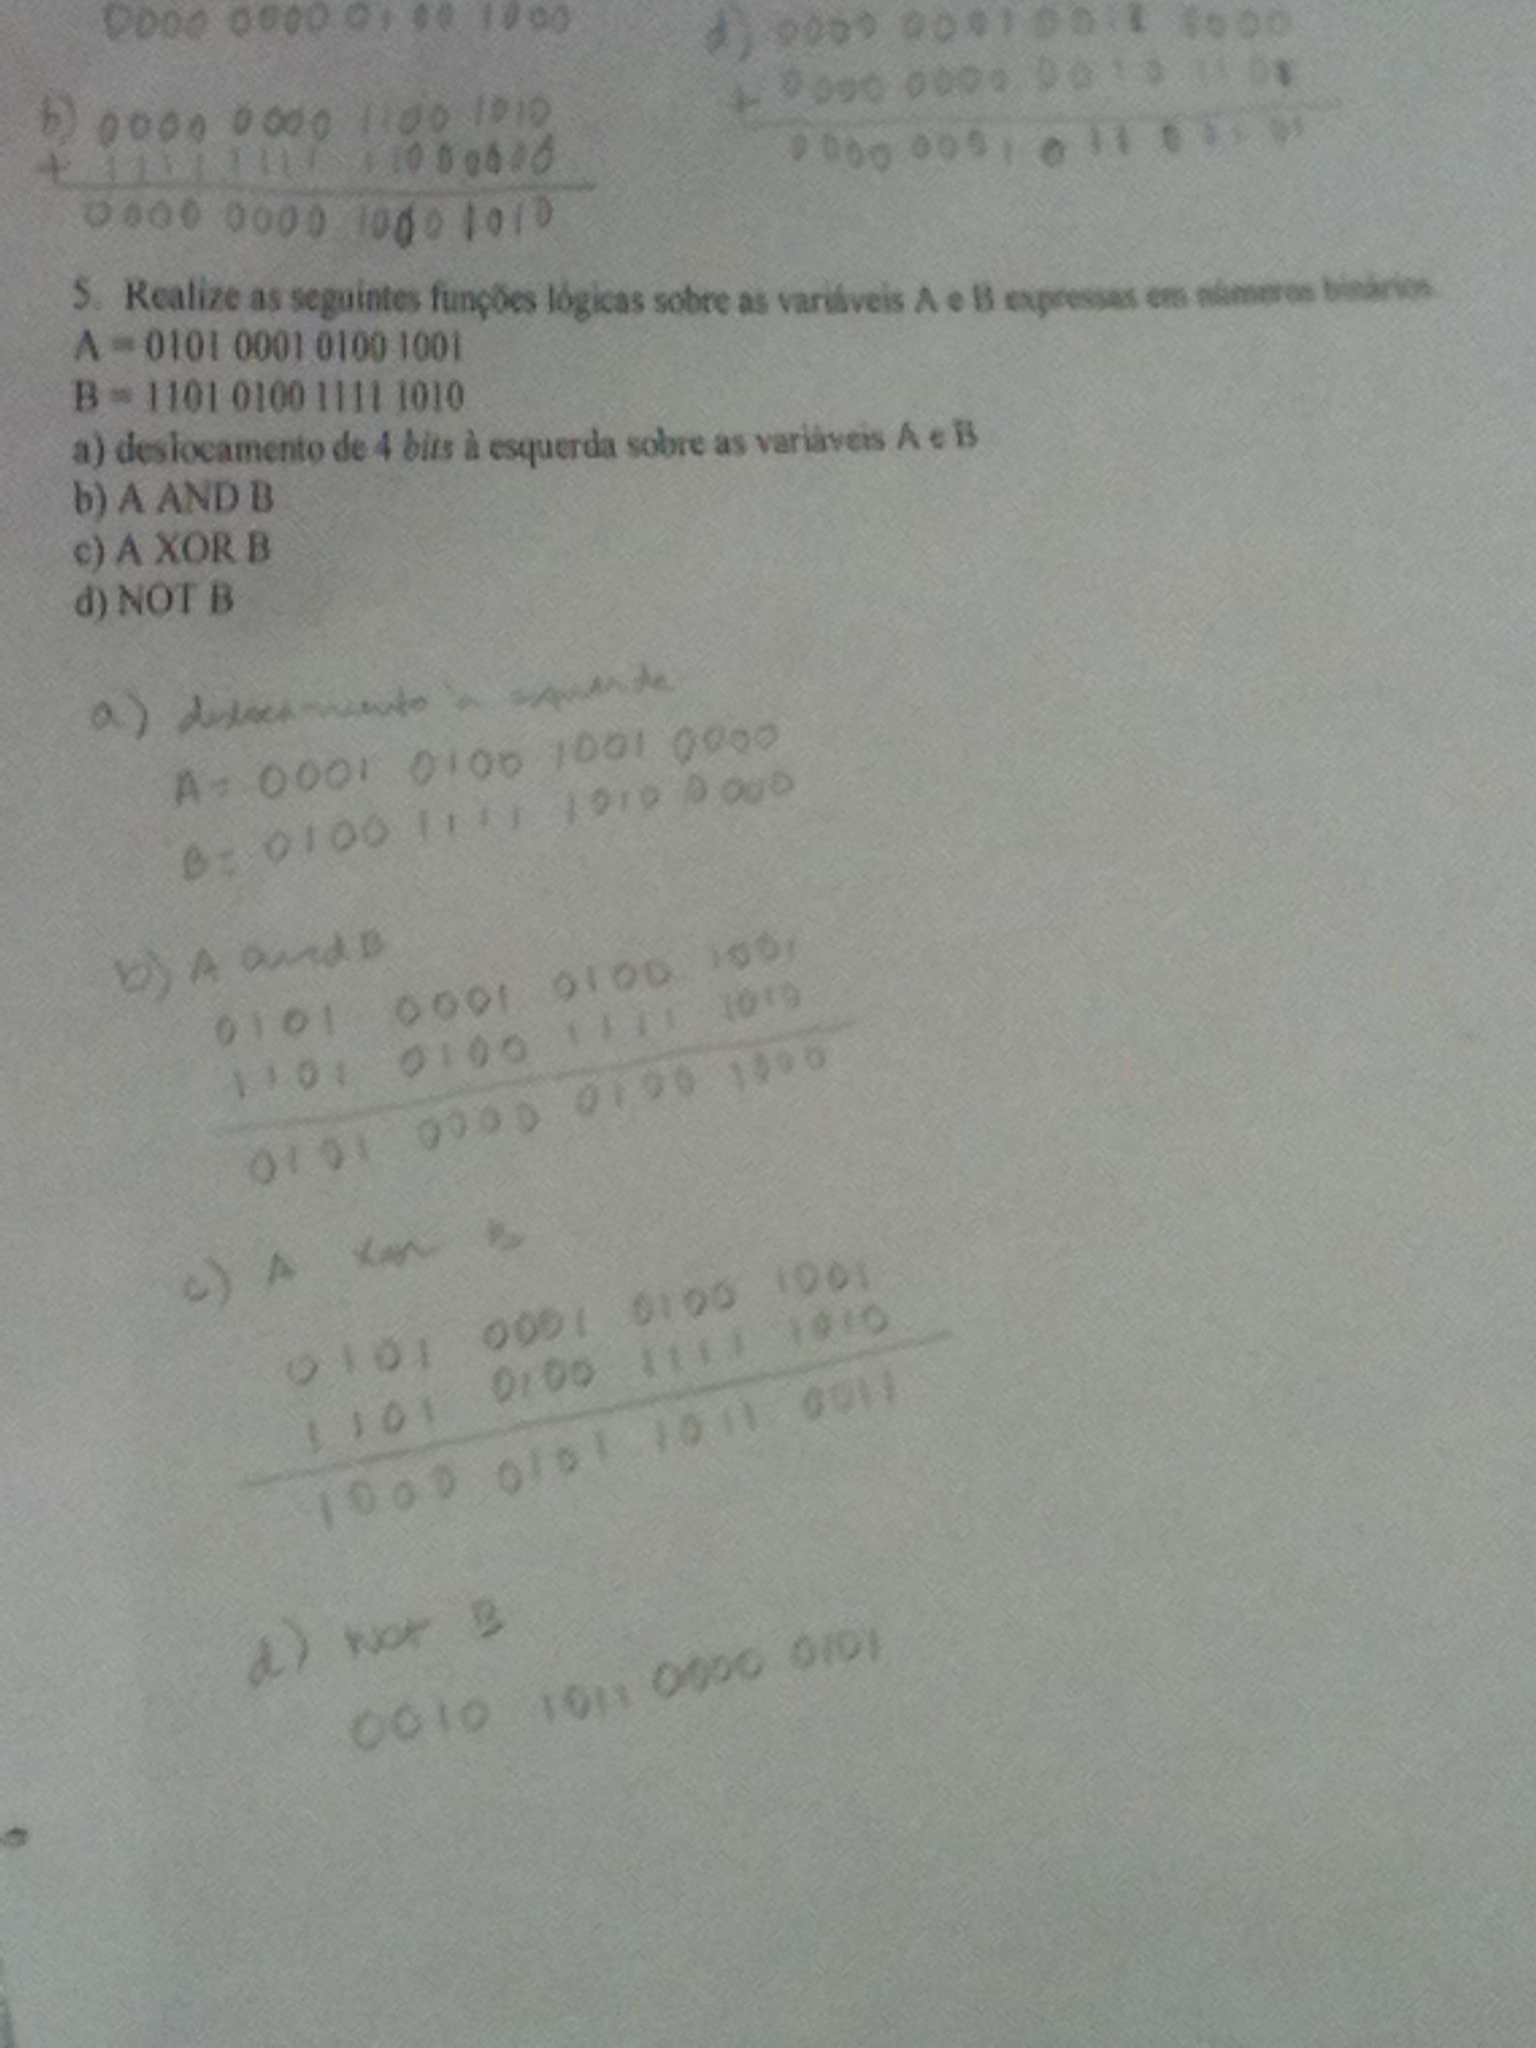 0000 0000 0100 1000
b) 0000 0000 1100 1010
+ 1111 1111 11000000
0000 0000 1000 1010
d) 0000 0001 0011 1000
+ 0000 0000 0010 110
0000 0001 0110 01
5. Realize as seguintes funções lógicas sobre as variáveis A e B expressas em números binários.
A = 0101 0001 0100 1001
B = 1101 0100 1111 1010
a) deslocamento de 4 bits à esquerda sobre as variáveis A e B
b) A AND B
c) A XOR B
d) NOT B
a) deslocamento à esquerda
A = 0001 0100 1001 0000
B = 0100 1111 1010 0000
b) A and B
0101 0001 0100 1001
1101 0100 1111 1010
0101 0000 0100 1000
c) A Xor B
0101 0001 0100 1001
1101 0100 1111 1010
1000 0101 1011 0011
d) Not B
0010 1011 0000 0101